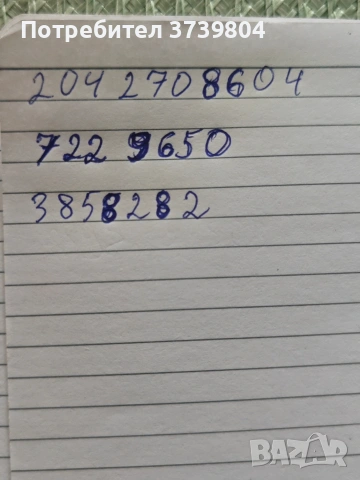 Потребител 3739804
204 2708604
722 9650
3858282
BAZAR